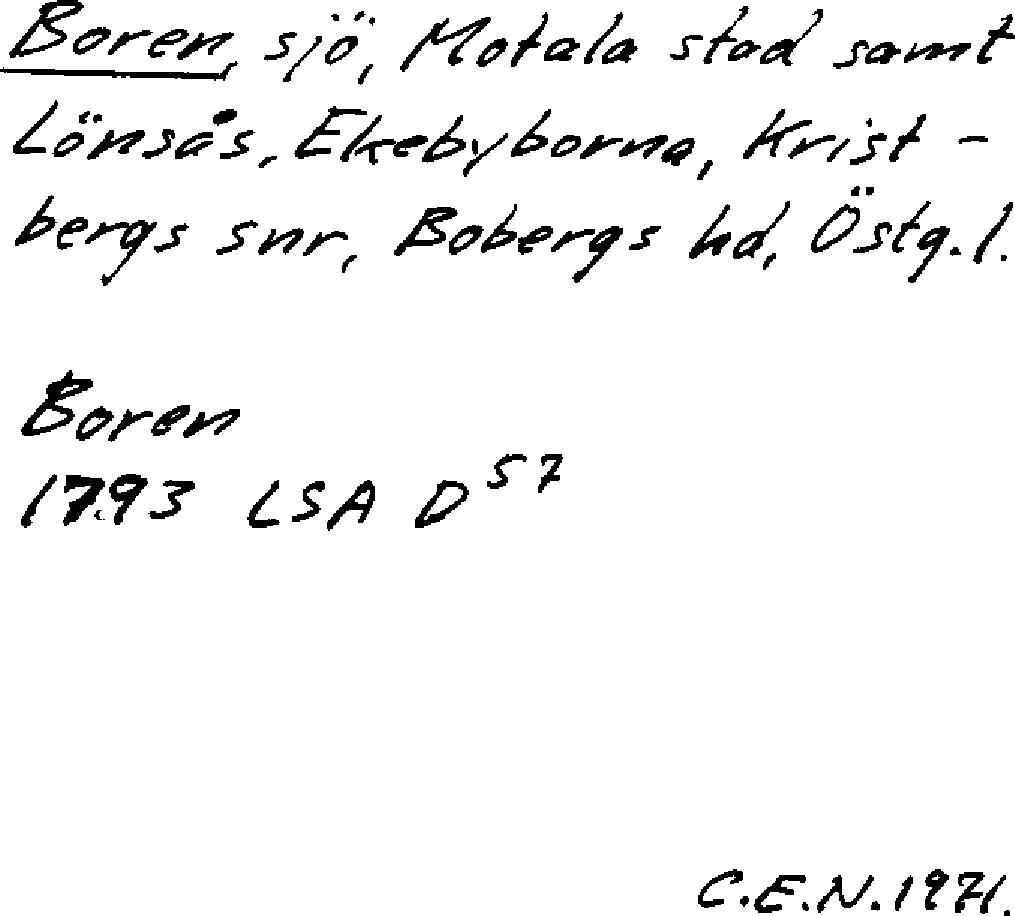 Boren, sjö, Motala stad samt
Lönsås, Ekebyborna, Krist-
bergs snr, Bobergs hd, Östg.l.
Boren
1793 LSA D⁵⁷
C.E.N. 1971.